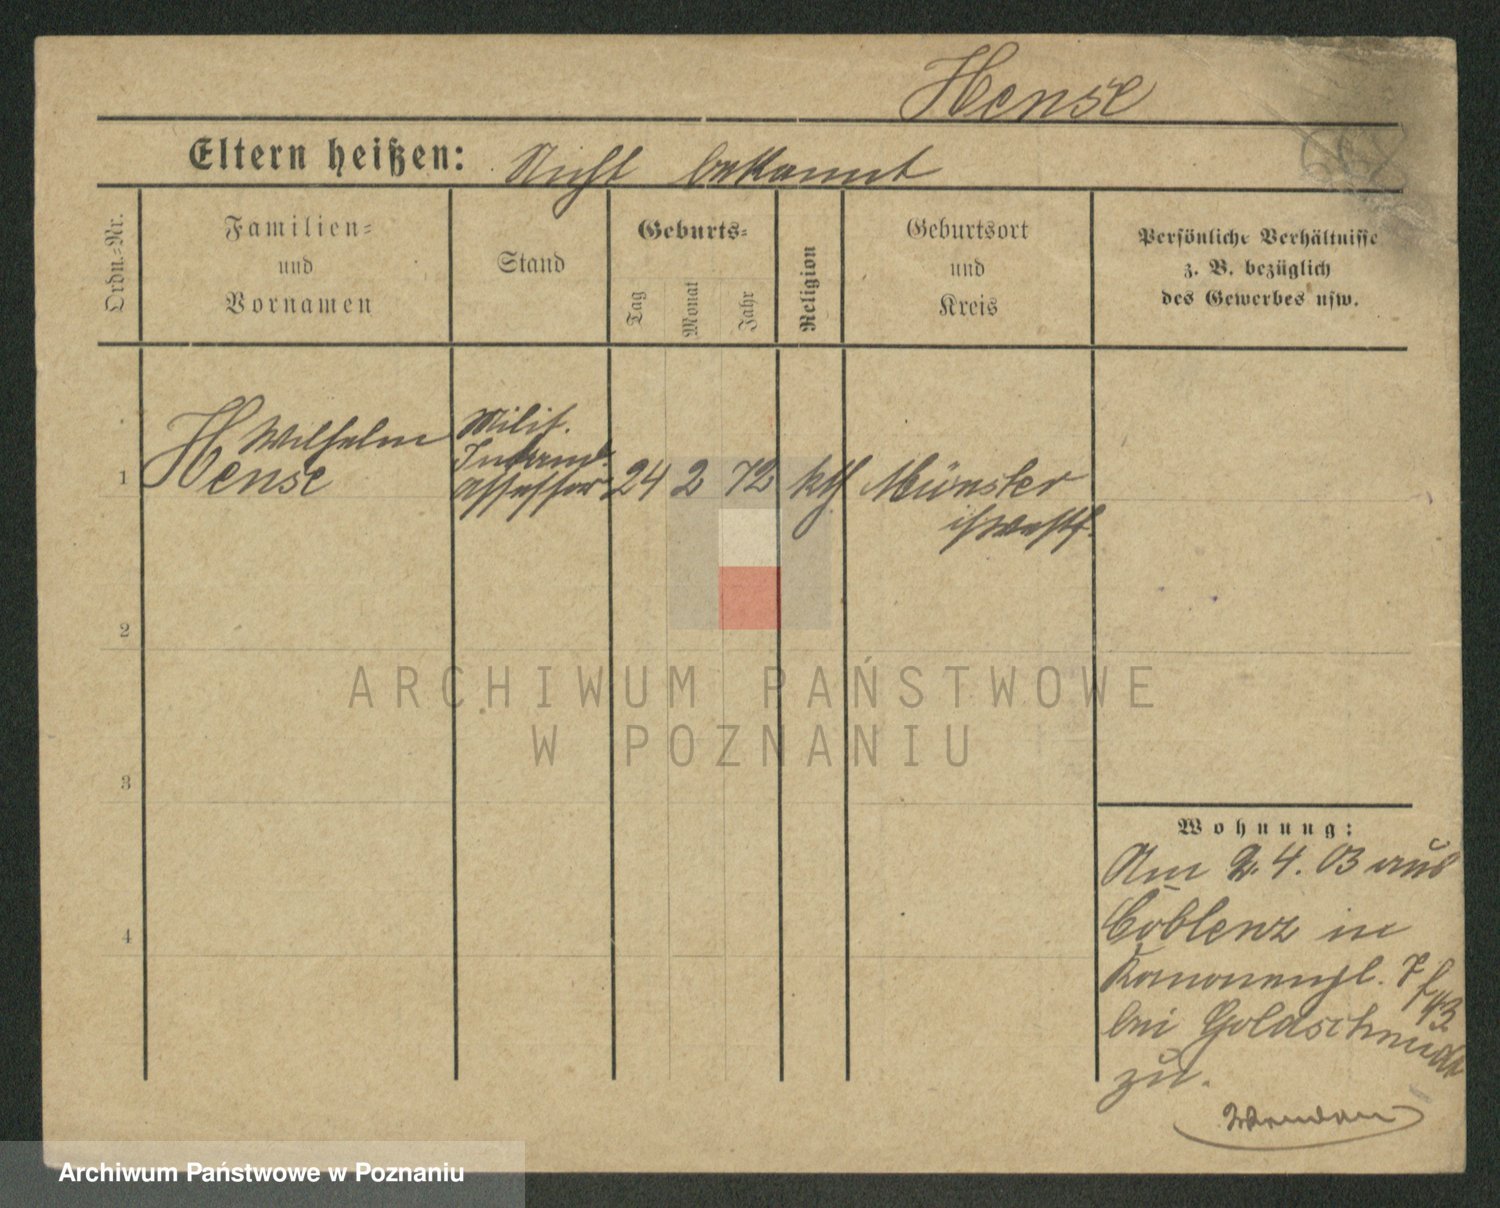 Hense
Eltern heißen: Nicht bekannt
Ordn.-Nr.
Familien-
und
Vornamen
Stand
Geburts-
Tag
Monat
Jahr
Religion
Geburtsort
und
Kreis
Persönliche Verhältnisse
z. B. bezüglich
des Gewerbes usw.
1
Wilhelm
Hense
Milit.
Intend.
assessor
24 2 72 kth Münster
i/Westf.
2
3
4
ARCHIWUM PAŃSTWOWE
W POZNANIU
Wohnung:
Am 2. 4. 03 aus
Coblenz in
Kanonenpl. 7
bei Goldschmidt
zu.
Archiwum Państwowe w Poznaniu